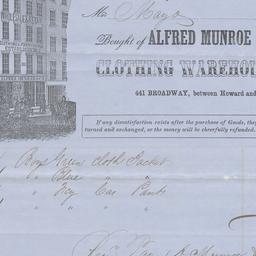 Mr Mayo
Bought of ALFRED MUNROE
CLOTHING WAREHO
441 BROADWAY, between Howard and
If any dissatisfaction exists after the purchase of Goods, they
turned and exchanged, or the money will be cheerfully refunded.
1 Boys Green Cloth Jacket
" Blue " "
" Grey Cas Pants
" " " "
A Munroe